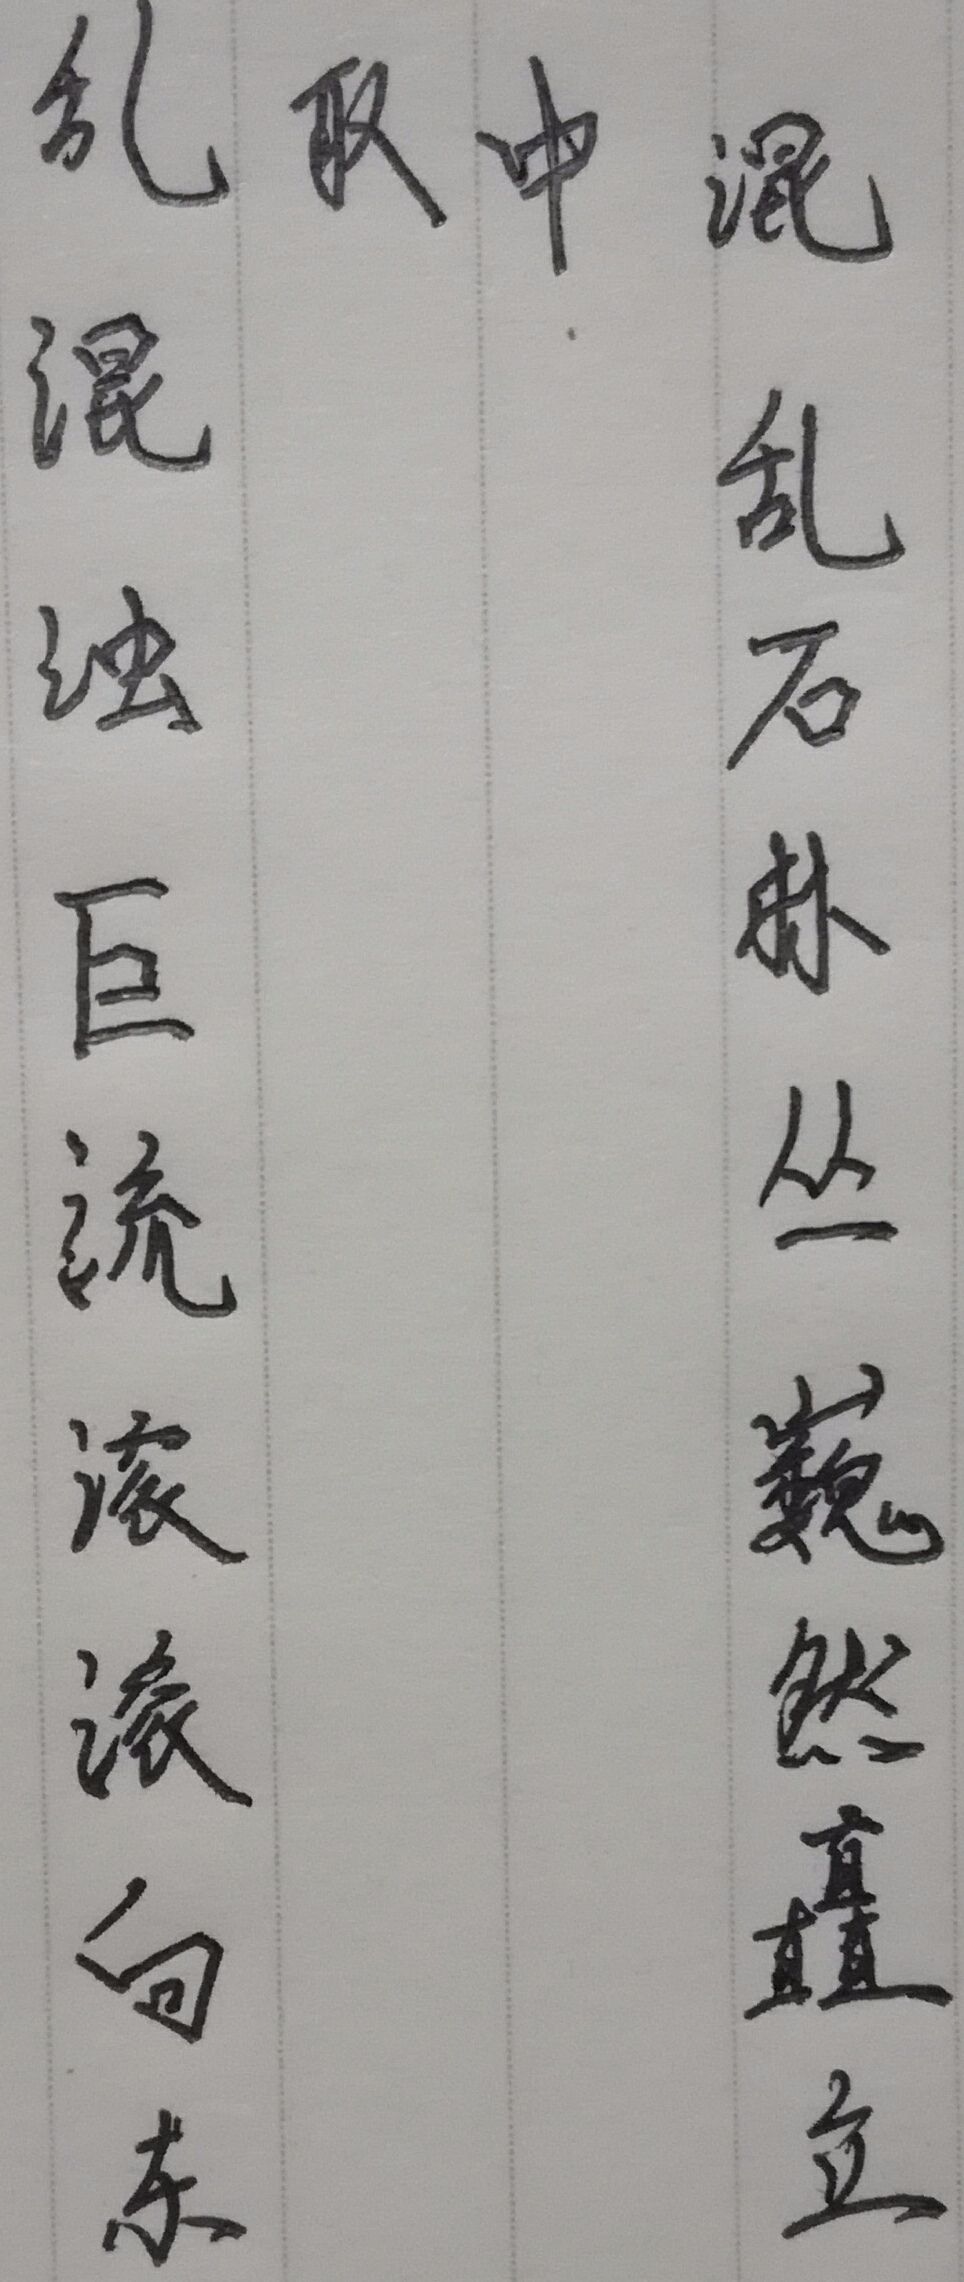 混乱石林丛巍然矗立
中
取
乱混浊巨流滚滚向东